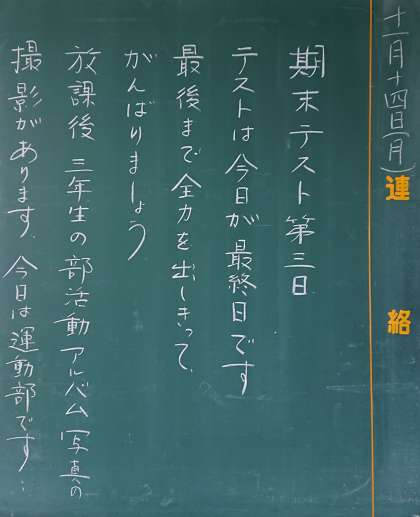 十一月十四日(月)
連絡
期末テスト第三日
テストは今日が最終日です
最後まで全力を出しきって、
がんばりましょう
放課後 三年生の部活動アルバム写真の
撮影があります。今日は運動部です…